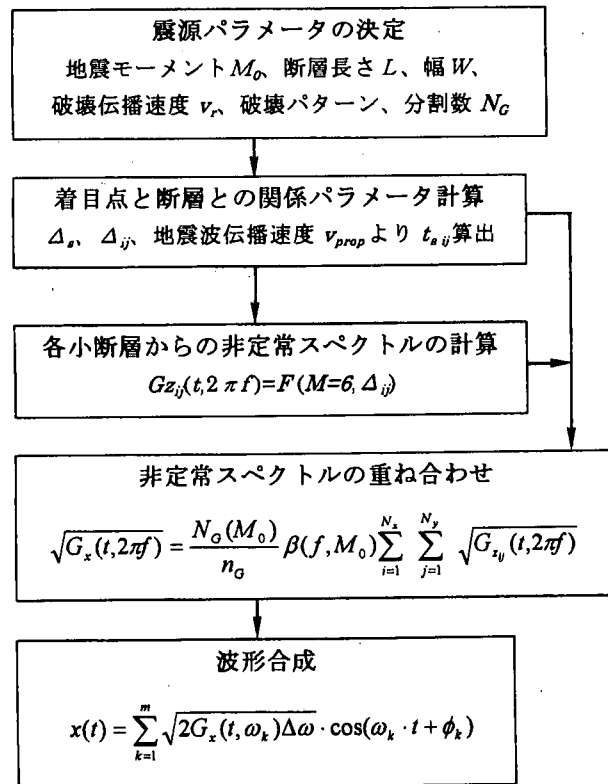 震源パラメータの決定
地震モーメントM₀、断層長さ L、幅 W、
破壊伝播速度 vᵣ、破壊パターン、分割数 N_G
着目点と断層との関係パラメータ計算
Δ_a、Δ_ij、地震波伝播速度 v_prop より t_a ij 算出
各小断層からの非定常スペクトルの計算
Gz_ij(t,2πf)=F(M=6,Δ_ij)
非定常スペクトルの重ね合わせ
√G_x(t,2πf) = N_G(M_0)/n_G β(f,M_0) ∑_{i=1}^{N_x} ∑_{j=1}^{N_y} √G_{z_ij}(t,2πf)
波形合成
x(t) = ∑_{k=1}^{m} √2G_x(t,ω_k)Δω · cos(ω_k · t + φ_k)